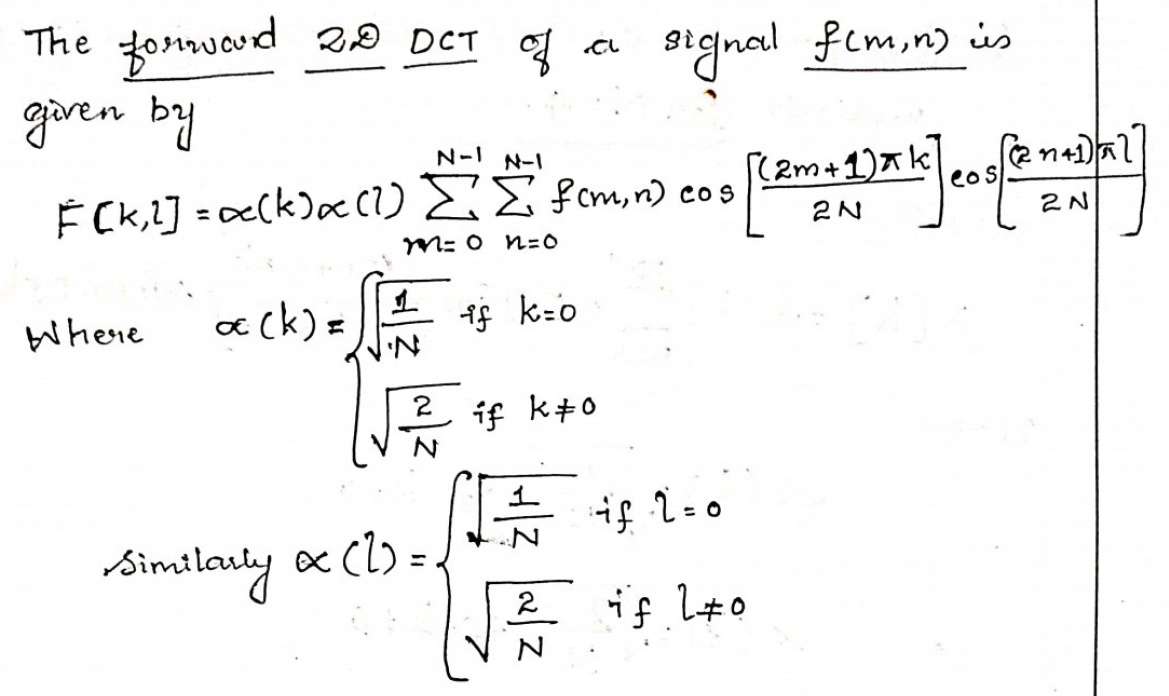 The forward 2D DCT of a signal f(m,n) is
given by
F[k,l] = ∝(k)∝(l) \sum_{m=0}^{N-1} \sum_{n=0}^{N-1} f(m,n) cos[\frac{(2m+1)πk}{2N}] cos[\frac{(2n+1)πl}{2N}]
Where ∝(k) = { \sqrt{\frac{1}{N}} if k=0
\sqrt{\frac{2}{N}} if k≠0
Similarly ∝(l) = { \sqrt{\frac{1}{N}} if l=0
\sqrt{\frac{2}{N}} if l≠0